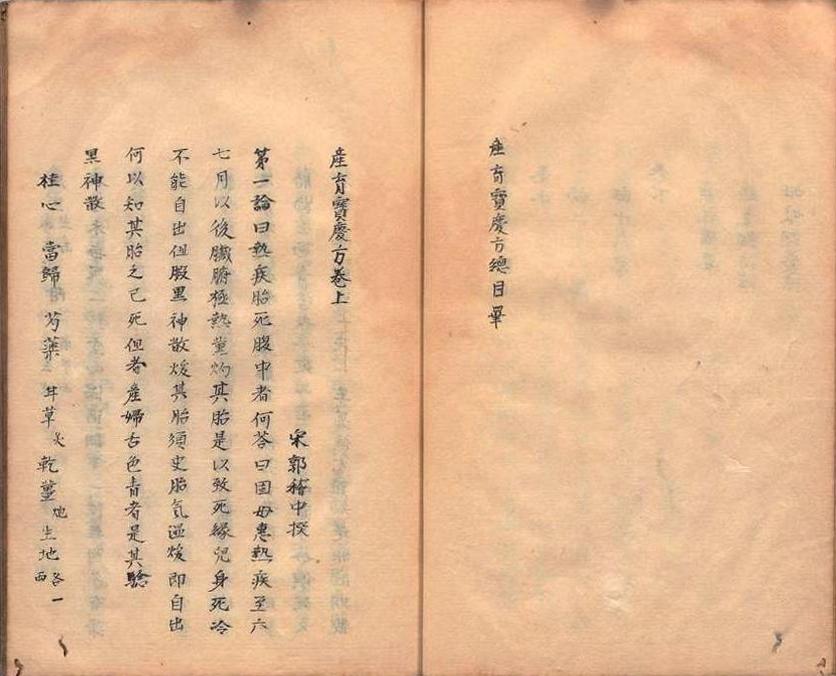 産育寶慶方總目畢
産育寶慶方卷上
宋郭稽中撰
第一論曰熱疾胎死腹中者何答曰因母患熱疾至六
七月以後臟腑極熱熏灼其胎是以致死緣兒身死冷
不能自出但服黒神散煖其胎須臾胎氣温煖即自出
何以知其胎之已死但看産婦舌色青者是其驗
黒神散
桂心 當歸 芍藥 甘草炙 乾薑炮 生地各一两